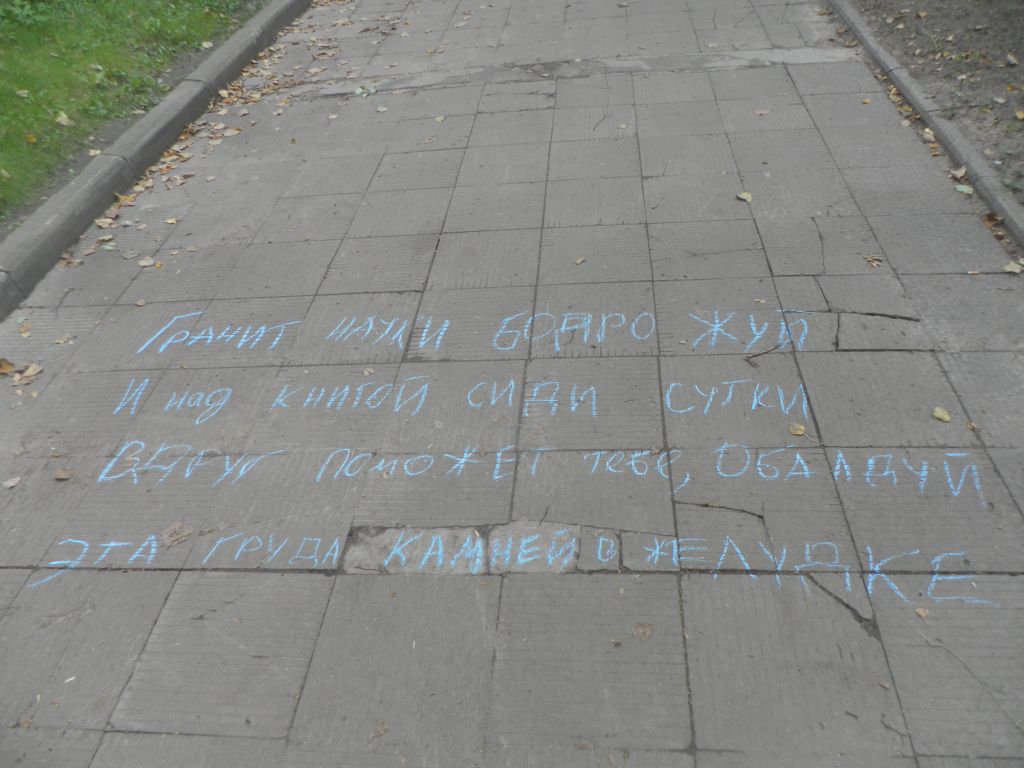 Гранит науки бодро жуй
И над книгой сиди сутки
Вдруг поможет тебе, обалдуй
Эта груда камней в желудке